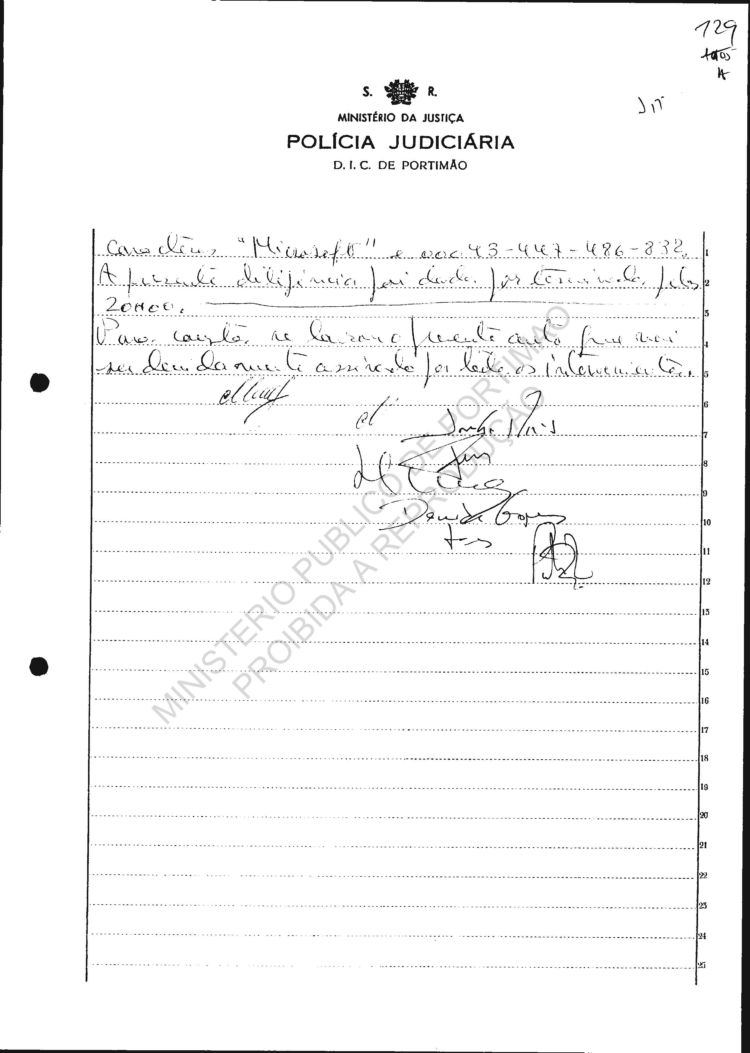 129
S. R.
MINISTÉRIO DA JUSTIÇA
POLÍCIA JUDICIÁRIA
D. I. C. DE PORTIMÃO
caracteres "Microsoft" e 43-447-486-832. 1
A presente diligência foi dada por terminada pelas 2
20H00. 3
Para constar se lavrou o presente auto que vai 4
ser devidamente assinado por todos os intervenientes. 5
6
7
8
9
10
11
12
13
14
15
16
17
18
19
20
21
22
23
24
25
MINISTERIO PUBLICO DE PORTIMAO
PROIBIDA A REPRODUÇÃO